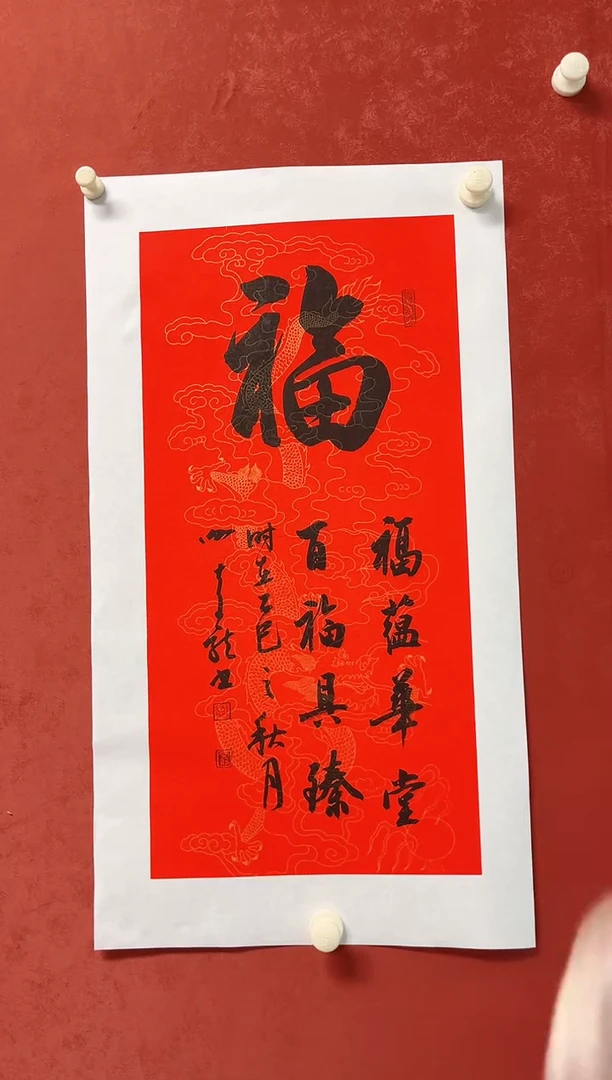 福
福蕴華堂
百福具臻
时在乙巳之秋月
龍书